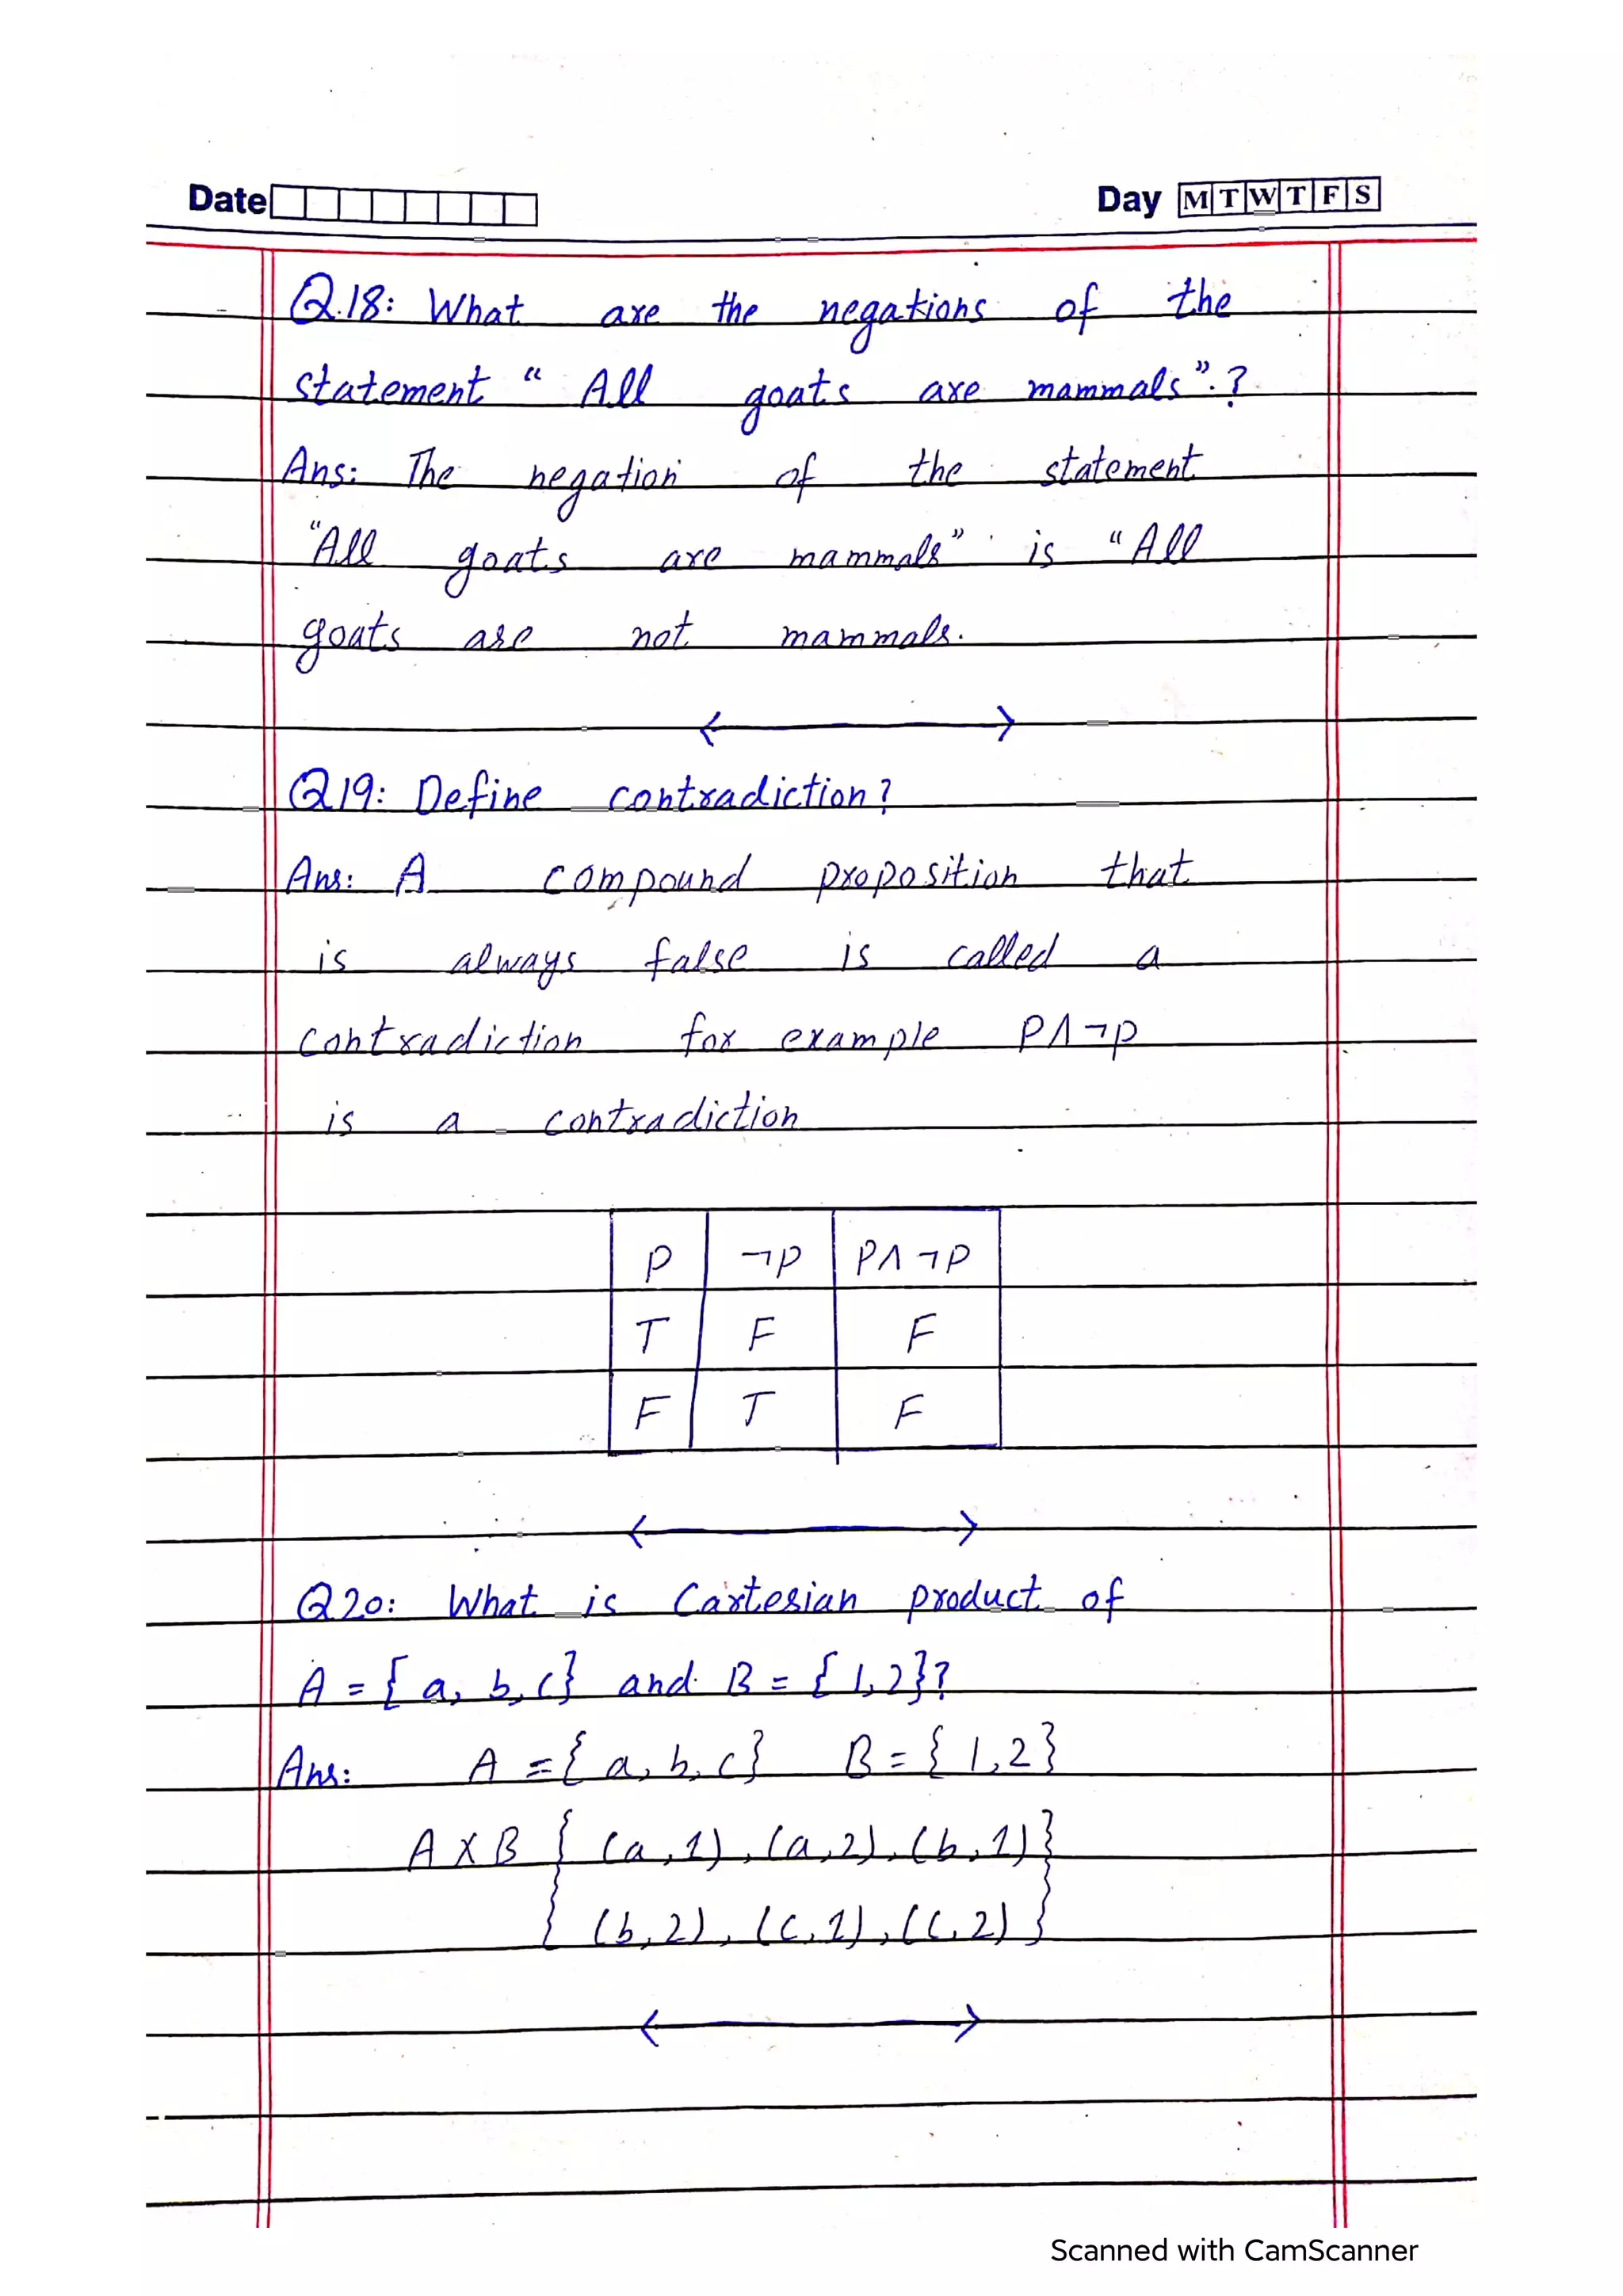 Date Day M T W T F S
Q.18: What are the negations of the
statement " All goats are mammals".?
Ans: The negation of the statement
"All goats are mammals" is "All
goats are not mammals.
Q19: Define contradiction?
Ans: A compound proposition that
is always false is called a
contradiction for example P∧¬p
is a contradiction
P ¬P P∧¬P
T F F
F T F
Q20: What is Cartesian product of
A = {a, b, c} and B = {1,2}?
Ans: A = {a, b, c} B = {1,2}
A X B { (a,1), (a,2), (b,1) }
{ (b,2), (c,1), (c,2) }
Scanned with CamScanner